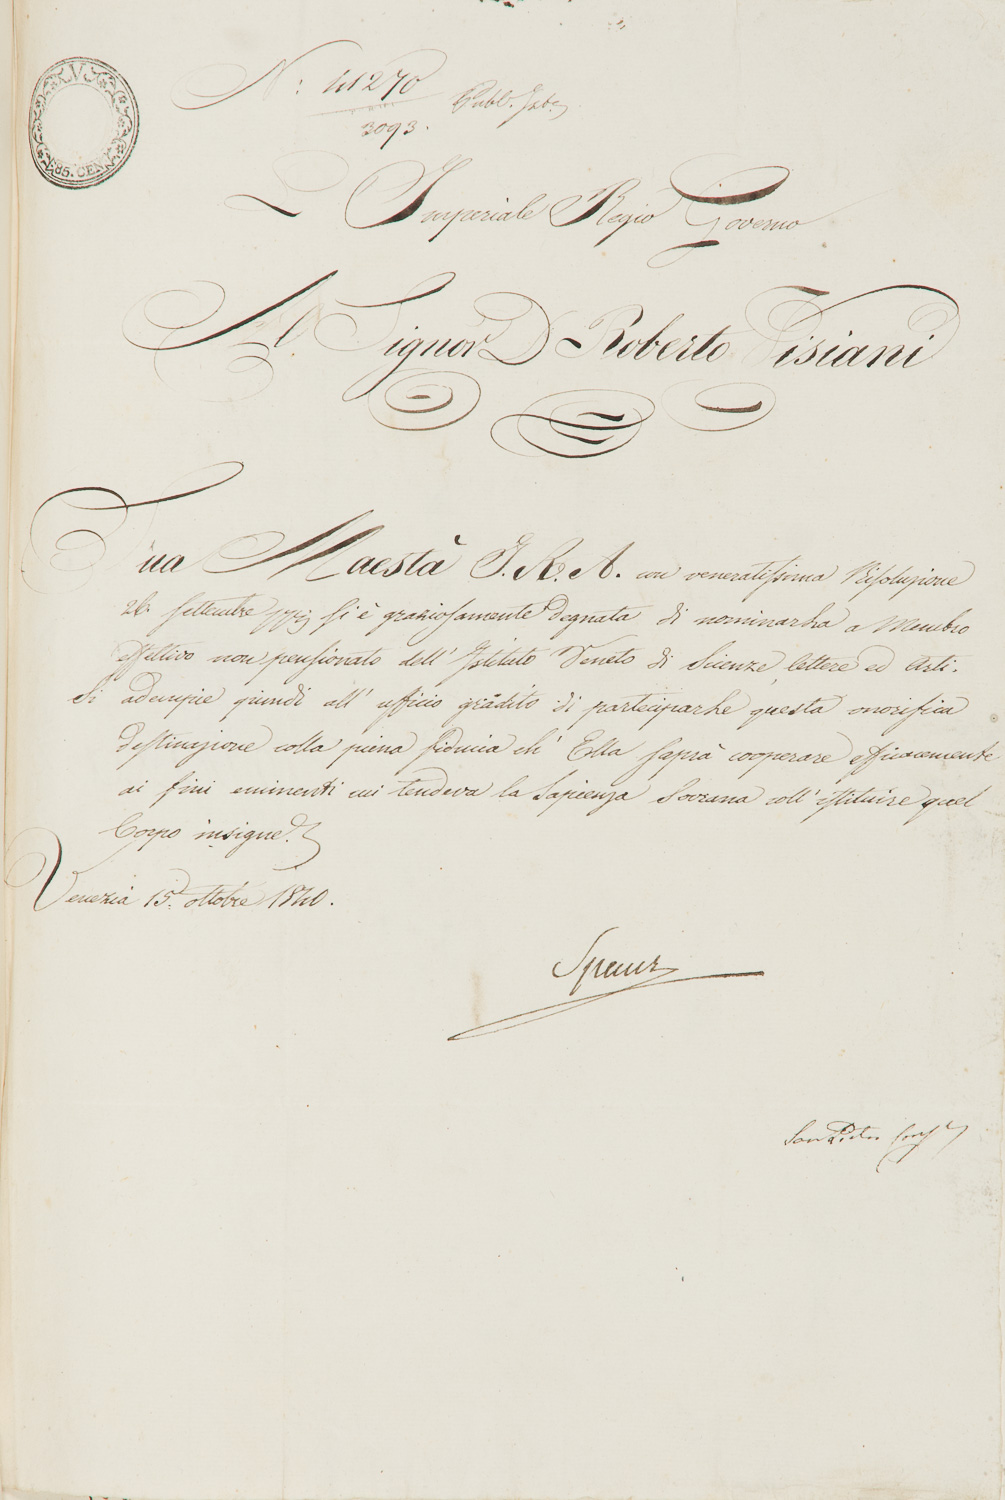 V
85. CEN.
N: 41270
3093. Publ. Istr.
L' Imperiale Regio Governo
Al Signor D Roberto Visiani
Sua Maestà I. R. A. con veneratissima Risoluzione
26 Settembre si è graziosamente degnata di nominarla a Membro
effettivo non pensionato dell' Istituto Veneto di Scienze, lettere ed Arti.
Si adempie quindi all' ufficio gradito di parteciparle questa onorifica
destinazione colla piena fiducia ch' Ella saprà cooperare efficacemente
ai fini eminenti cui tendeva la Sapienza Sovrana coll' istituire quel
Corpo insigne.
Venezia 15. ottobre 1840.
Spaur